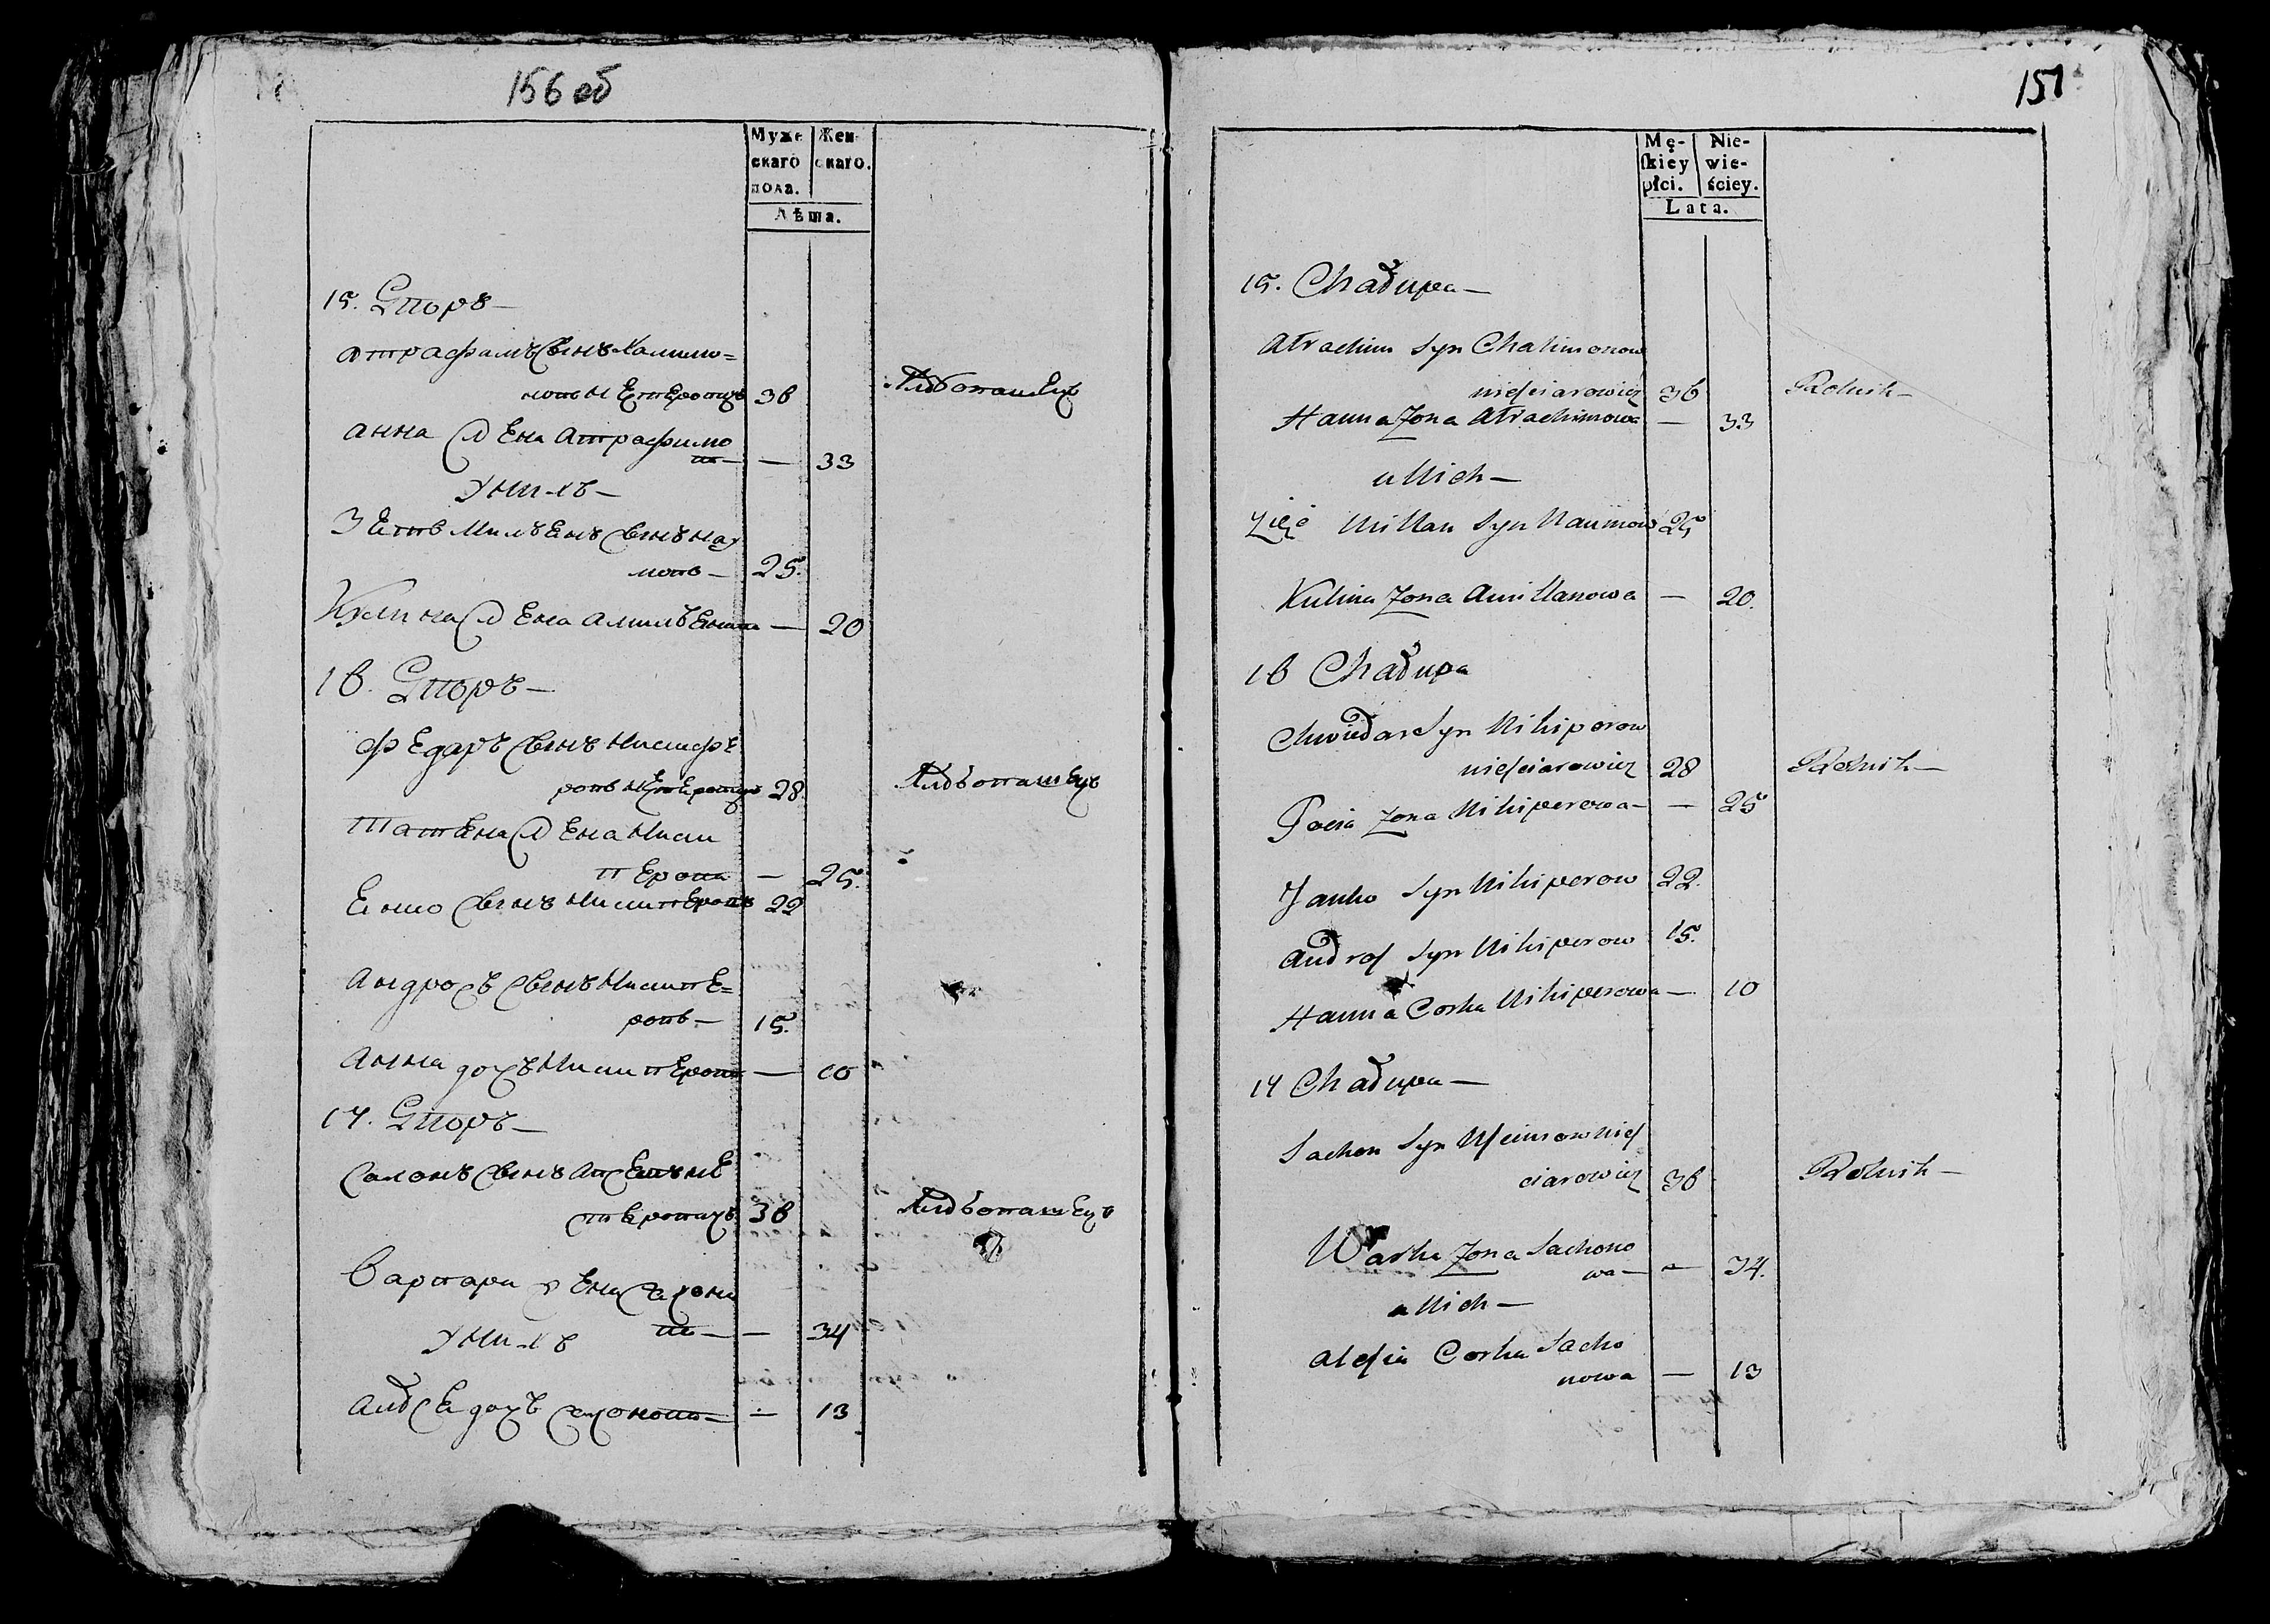 156 об
Муже
скаго
пола.
Жен
скаго.
Лѣта.
15. Дворъ —
Атрафимъ сынъ Халимо=
новъ Нестеровичъ 36
Хлѣбопашецъ
Анна жена Атрафимо
ва — — 33
У них —
Зеть Миленъ сынъ Нау
мовъ — 25.
Кулина жена Амиленова — 20
16. Дворъ —
Федаръ сынъ Никифе
ровъ Нестеровичъ 28.
Хлѣбопашецъ
Татена жена Ники
перова — 25.
Енко сынъ Никиперовъ 22
Андросъ сынъ Никипе=
ровъ — 15.
Анна дочь Никиперова — 10
17. Дворъ —
Сахонъ сынъ Авсеевъ Не
стеровичъ 36
Хлѣбопашецъ
Варвара жена Сахоно
ва — — 34
У них
дочь Сахонова — — 13
157
Mę-
ſkiey
płci.
Nie-
wie-
ściey.
Lata.
15. Chałupa —
Atrachim Syn Chalimonow
nieſciarowicz 36 Rolnik —
Hanna Zona Atrachimowa — 33
u Nich —
Zięć Millan Syn Naumow 25
Kulina Zona Amillanowa — 20.
16 Chałupa
Chwiedar Syn Nikiporow
nieſciarowicz 28 Rolnik —
Zona Nikiperowa — — 25
Janko Syn Nikiperow 22.
Androſ Syn Nikiperow 15.
Hanna Corka Nikiperowa — 10
17 Chałupa —
Sachon Syn Nieſ
ciarowicz 36 Rolnik —
Warka Zona Sachono
wa — — 34.
u Nich —
Aleſia Corka Sacho
nowa — 13